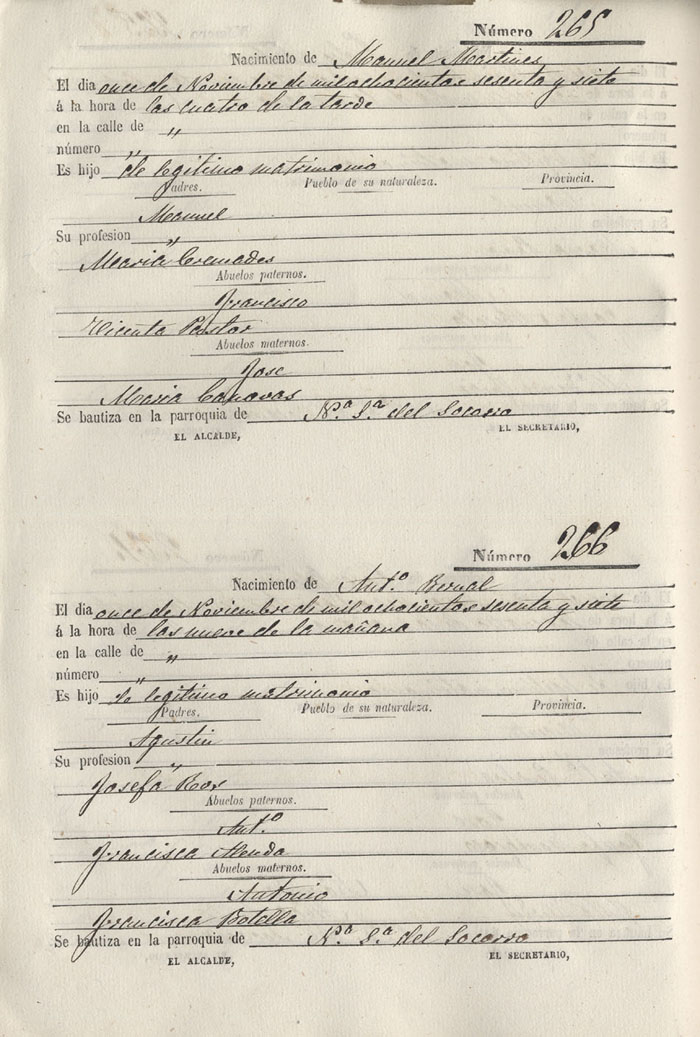 Número 265
Nacimiento de Manuel Martines
El dia once de Noviembre de mil ochocientos sesenta y siete
á la hora de las cuatro de la tarde
en la calle de „
número „
Es hijo de legitimo matrimonio
Padres. Pueblo de su naturaleza. Provincia.
Manuel
Su profesion „
Maria Cremades
Abuelos paternos.
Francisco
Vicenta Pastor
Abuelos maternos.
Jose
Maria Canovas
Se bautiza en la parroquia de N.ª S.ª del Socorro
EL ALCALDE, EL SECRETARIO,
Número 266
Nacimiento de Ant.º Bernal
El dia once de Noviembre de mil ochocientos sesenta y siete
á la hora de las nueve de la mañana
en la calle de „
número „
Es hijo de legitimo matrimonio
Padres. Pueblo de su naturaleza. Provincia.
Agustin
Su profesion „
Josefa Ros
Abuelos paternos.
Ant.º
Francisca
Abuelos maternos.
Antonio
Francisca Botella
Se bautiza en la parroquia de N.ª S.ª del Socorro
EL ALCALDE, EL SECRETARIO,